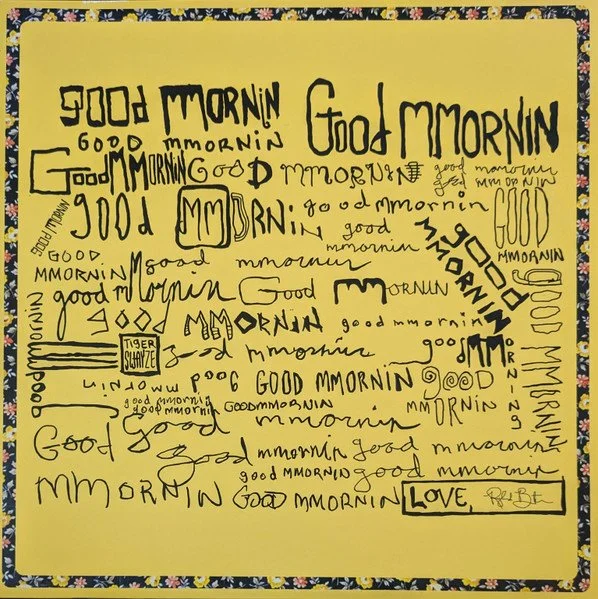 good MMORNIN Good MMORNIN
GOOD mmORNIN
Good MMORNIN GOOD MMORNIN good mmornin
good MMORNIN
good MMORNIN good mmornin GOOD
good mmornin
MMORNIN
GOOD MMORNIN
GOOD MMORNIN good mmornin
good MMORNIN
good mMornin Good MMORNIN
GOOD MMORNIN
good MMORNIN good mmornin
good mmornin
TIGER SWAYZE good mmornin good MMORNING
good mmornin GOOD MMORNIN good MMORNIN
good mmornin
good mmornin GOODMMORNIN
good mmornin
Good MMORNIN
good mmornin good mmornin
good MMORNIN good mmornin
GOOD MMORNIN LOVE,